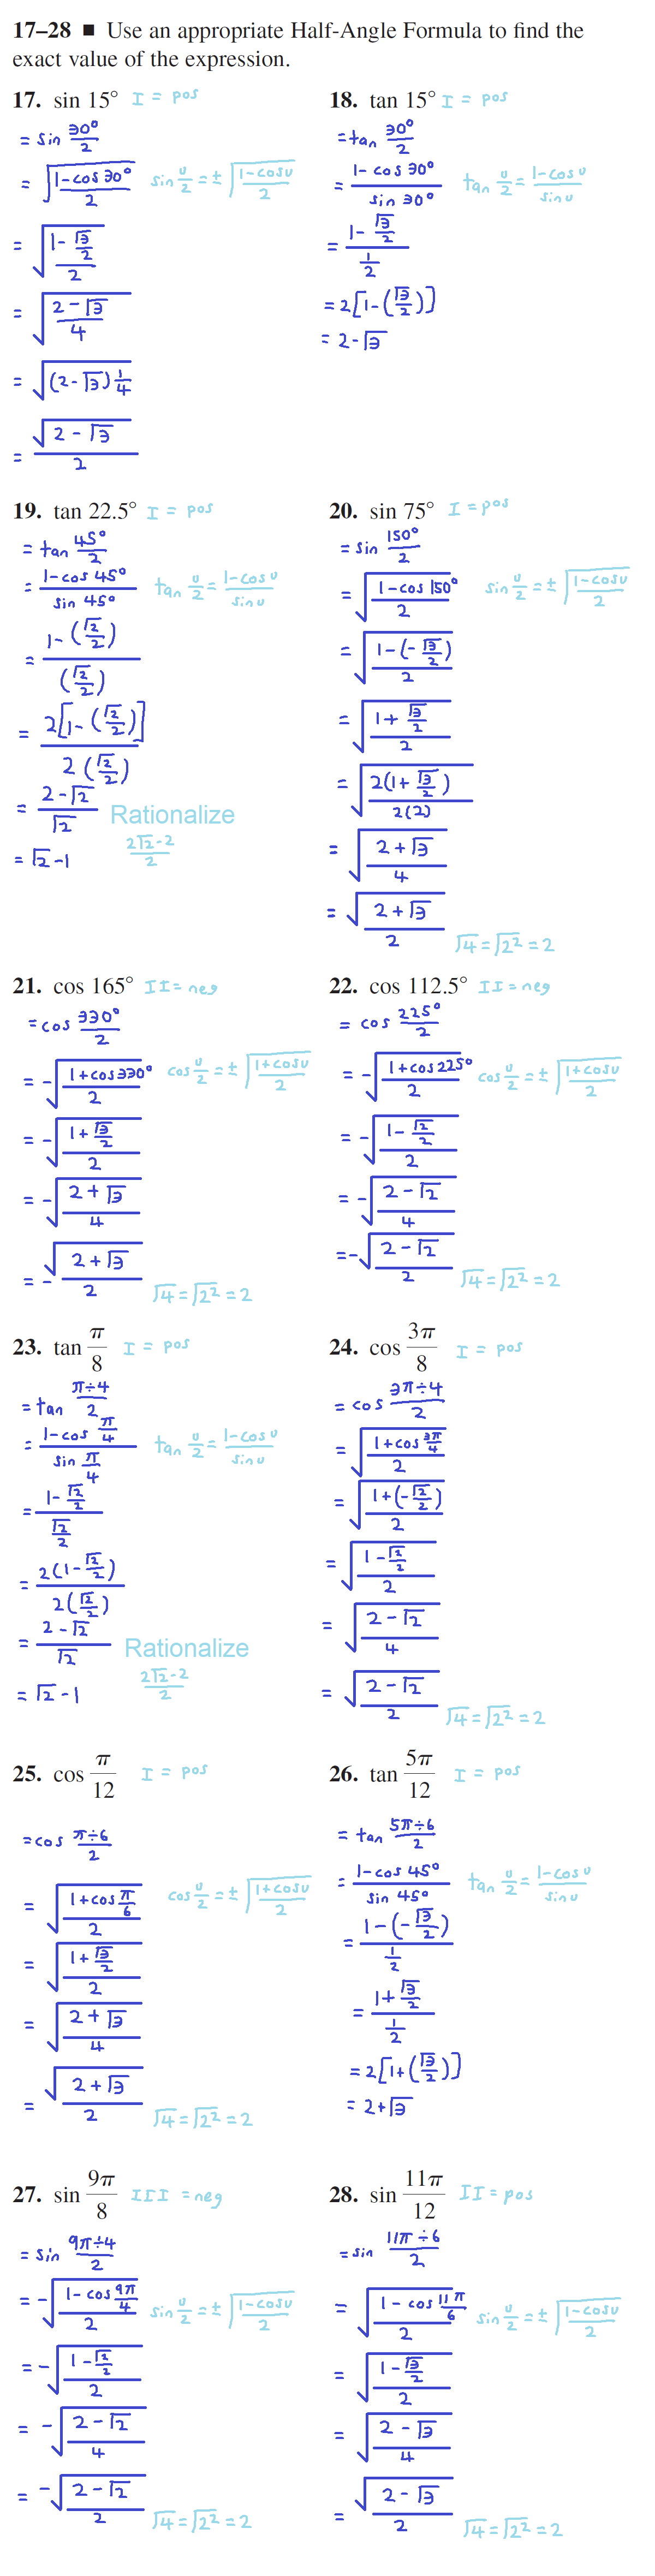 17–28 ■ Use an appropriate Half-Angle Formula to find the
exact value of the expression.
17. sin 15° I = pos
= sin 30°/2
= √((1-cos 30°)/2) sin u/2 = ± √((1-cosu)/2)
= √((1-√3/2)/2)
= √((2-√3)/4)
= √((2-√3)1/4)
= √(2-√3)/2
18. tan 15° I = pos
= tan 30°/2
= (1-cos 30°)/(sin 30°) tan u/2 = (1-cosu)/(sinu)
= (1-√3/2)/(1/2)
= 2[1-(√3/2)]
= 2-√3
19. tan 22.5° I = pos
= tan 45°/2
= (1-cos 45°)/(sin 45°) tan u/2 = (1-cosu)/(sinu)
= (1-(√2/2))/((√2/2))
= 2[1-(√2/2)]/(2(√2/2))
= (2-√2)/√2 Rationalize
= √2-1 (2√2-2)/2
20. sin 75° I = pos
= sin 150°/2
= √((1-cos 150°)/2) sin u/2 = ± √((1-cosu)/2)
= √((1-(-√3/2))/2)
= √((1+√3/2)/2)
= √(2(1+√3/2)/2(2))
= √((2+√3)/4)
= √((2+√3)/2) √4 = √2² = 2
21. cos 165° II = neg
= cos 330°/2
= -√((1+cos330°)/2) cos u/2 = ± √((1+cosu)/2)
= -√((1+√3/2)/2)
= -√((2+√3)/4)
= -√(2+√3)/2 √4 = √2² = 2
22. cos 112.5° II = neg
= cos 225°/2
= -√((1+cos225°)/2) cos u/2 = ± √((1+cosu)/2)
= -√((1-√2/2)/2)
= -√((2-√2)/4)
= -√((2-√2)/2) √4 = √2² = 2
23. tan π/8 I = pos
= tan (π÷4)/2
= (1-cos π/4)/(sin π/4) tan u/2 = (1-cosu)/(sinu)
= (1-√2/2)/(√2/2)
= 2(1-√2/2)/(2(√2/2))
= (2-√2)/√2 Rationalize
= √2-1 (2√2-2)/2
24. cos 3π/8 I = pos
= cos (3π÷4)/2
= √((1+cos 3π/4)/2)
= √((1+(-√2/2))/2)
= √((1-√2/2)/2)
= √((2-√2)/4)
= √((2-√2)/2) √4 = √2² = 2
25. cos π/12 I = pos
= cos (π÷6)/2
= √((1+cos π/6)/2) cos u/2 = ± √((1+cosu)/2)
= √((1+√3/2)/2)
= √((2+√3)/4)
= √(2+√3)/2 √4 = √2² = 2
26. tan 5π/12 I = pos
= tan (5π÷6)/2
= (1-cos 45°)/(sin 45°) tan u/2 = (1-cosu)/(sinu)
= (1-(-√3/2))/(1/2)
= (1+√3/2)/(1/2)
= 2[1+(√3/2)]
= 2+√3
27. sin 9π/8 III = neg
= sin (9π÷4)/2
= -√((1-cos 9π/4)/2) sin u/2 = ± √((1-cosu)/2)
= -√((1-√2/2)/2)
= -√((2-√2)/4)
= -√((2-√2)/2) √4 = √2² = 2
28. sin 11π/12 II = pos
= sin (11π÷6)/2
= √((1-cos 11π/6)/2) sin u/2 = ± √((1-cosu)/2)
= √((1-√3/2)/2)
= √((2-√3)/4)
= √(2-√3)/2 √4 = √2² = 2